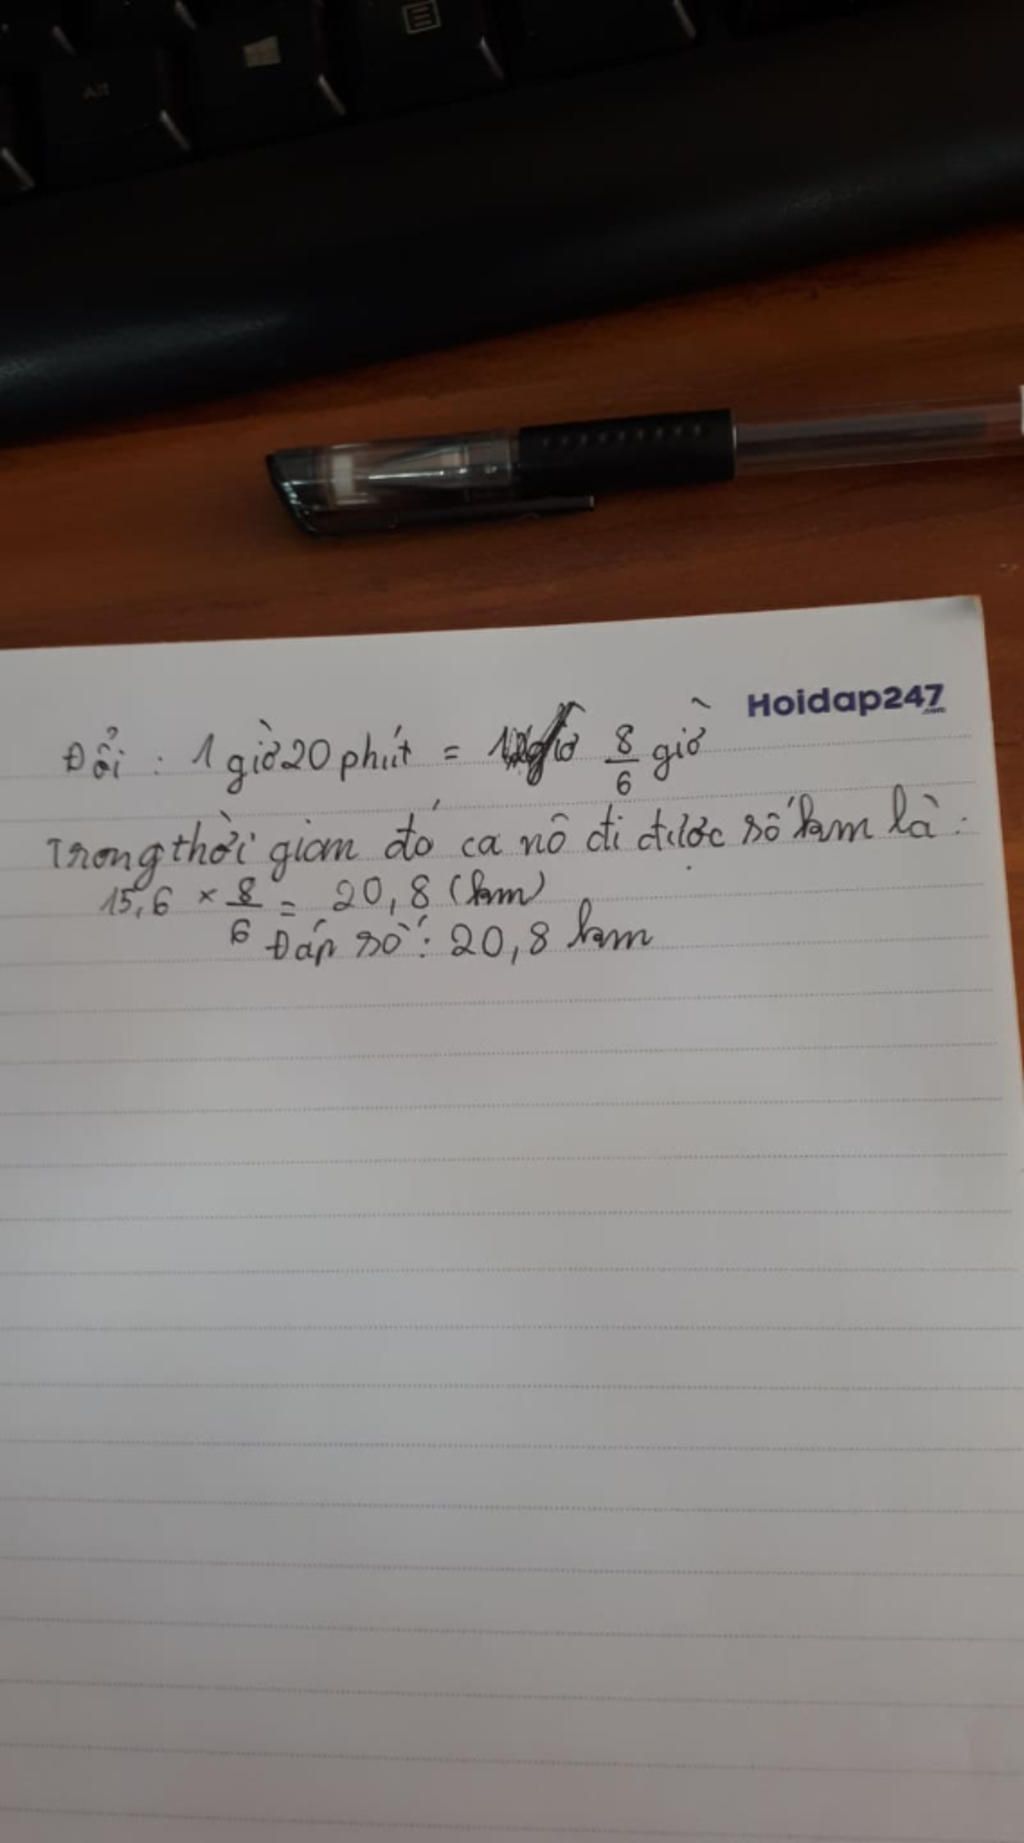 Alt
Hoidap247
.com
Đổi : 1 giờ 20 phút = 8/6 giờ
Trong thời gian đó ca nô đi được số km là :
15,6 × 8/6 = 20,8 (km)
Đáp số : 20,8 km